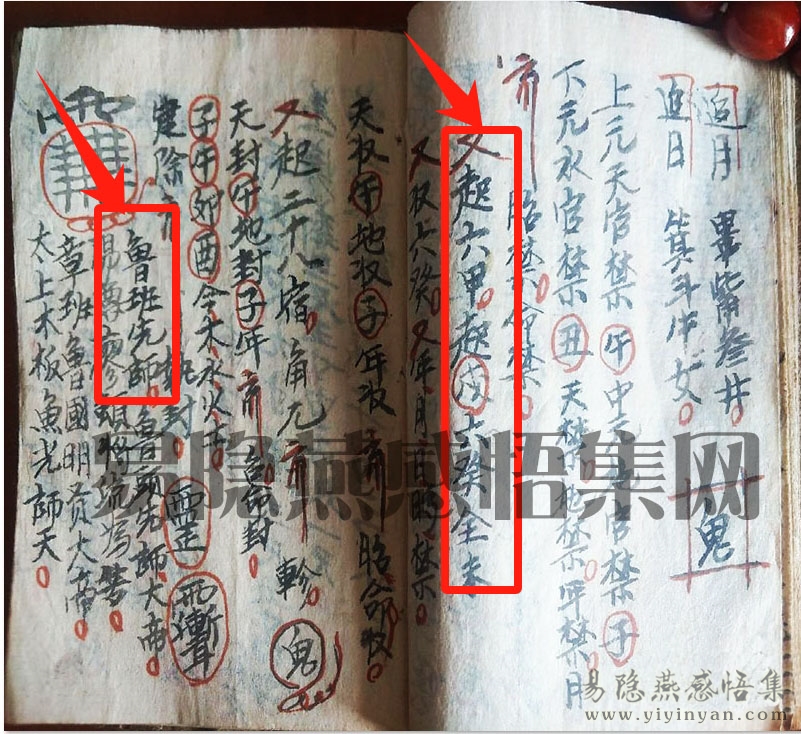 追月 畢觜參井
追日 箕斗牛女
鬼
上元天官禁午中元地官禁子
下元水官禁丑天禁地禁年禁月
胎禁命禁
又起六甲起戌六癸全來
又收六癸又年月日時禁
天收午地收子年收 胎命收
又起二十八宿角亢 軫 鬼
天封午地封子年 命封
子午卯酉金木水火土
建除 執封
魯班先師 魯頭先師大帝
章班魯國明貢大帝
太上木板魚光師天
易隐燕感悟集网
易隐燕感悟集
www.yiyinyan.com